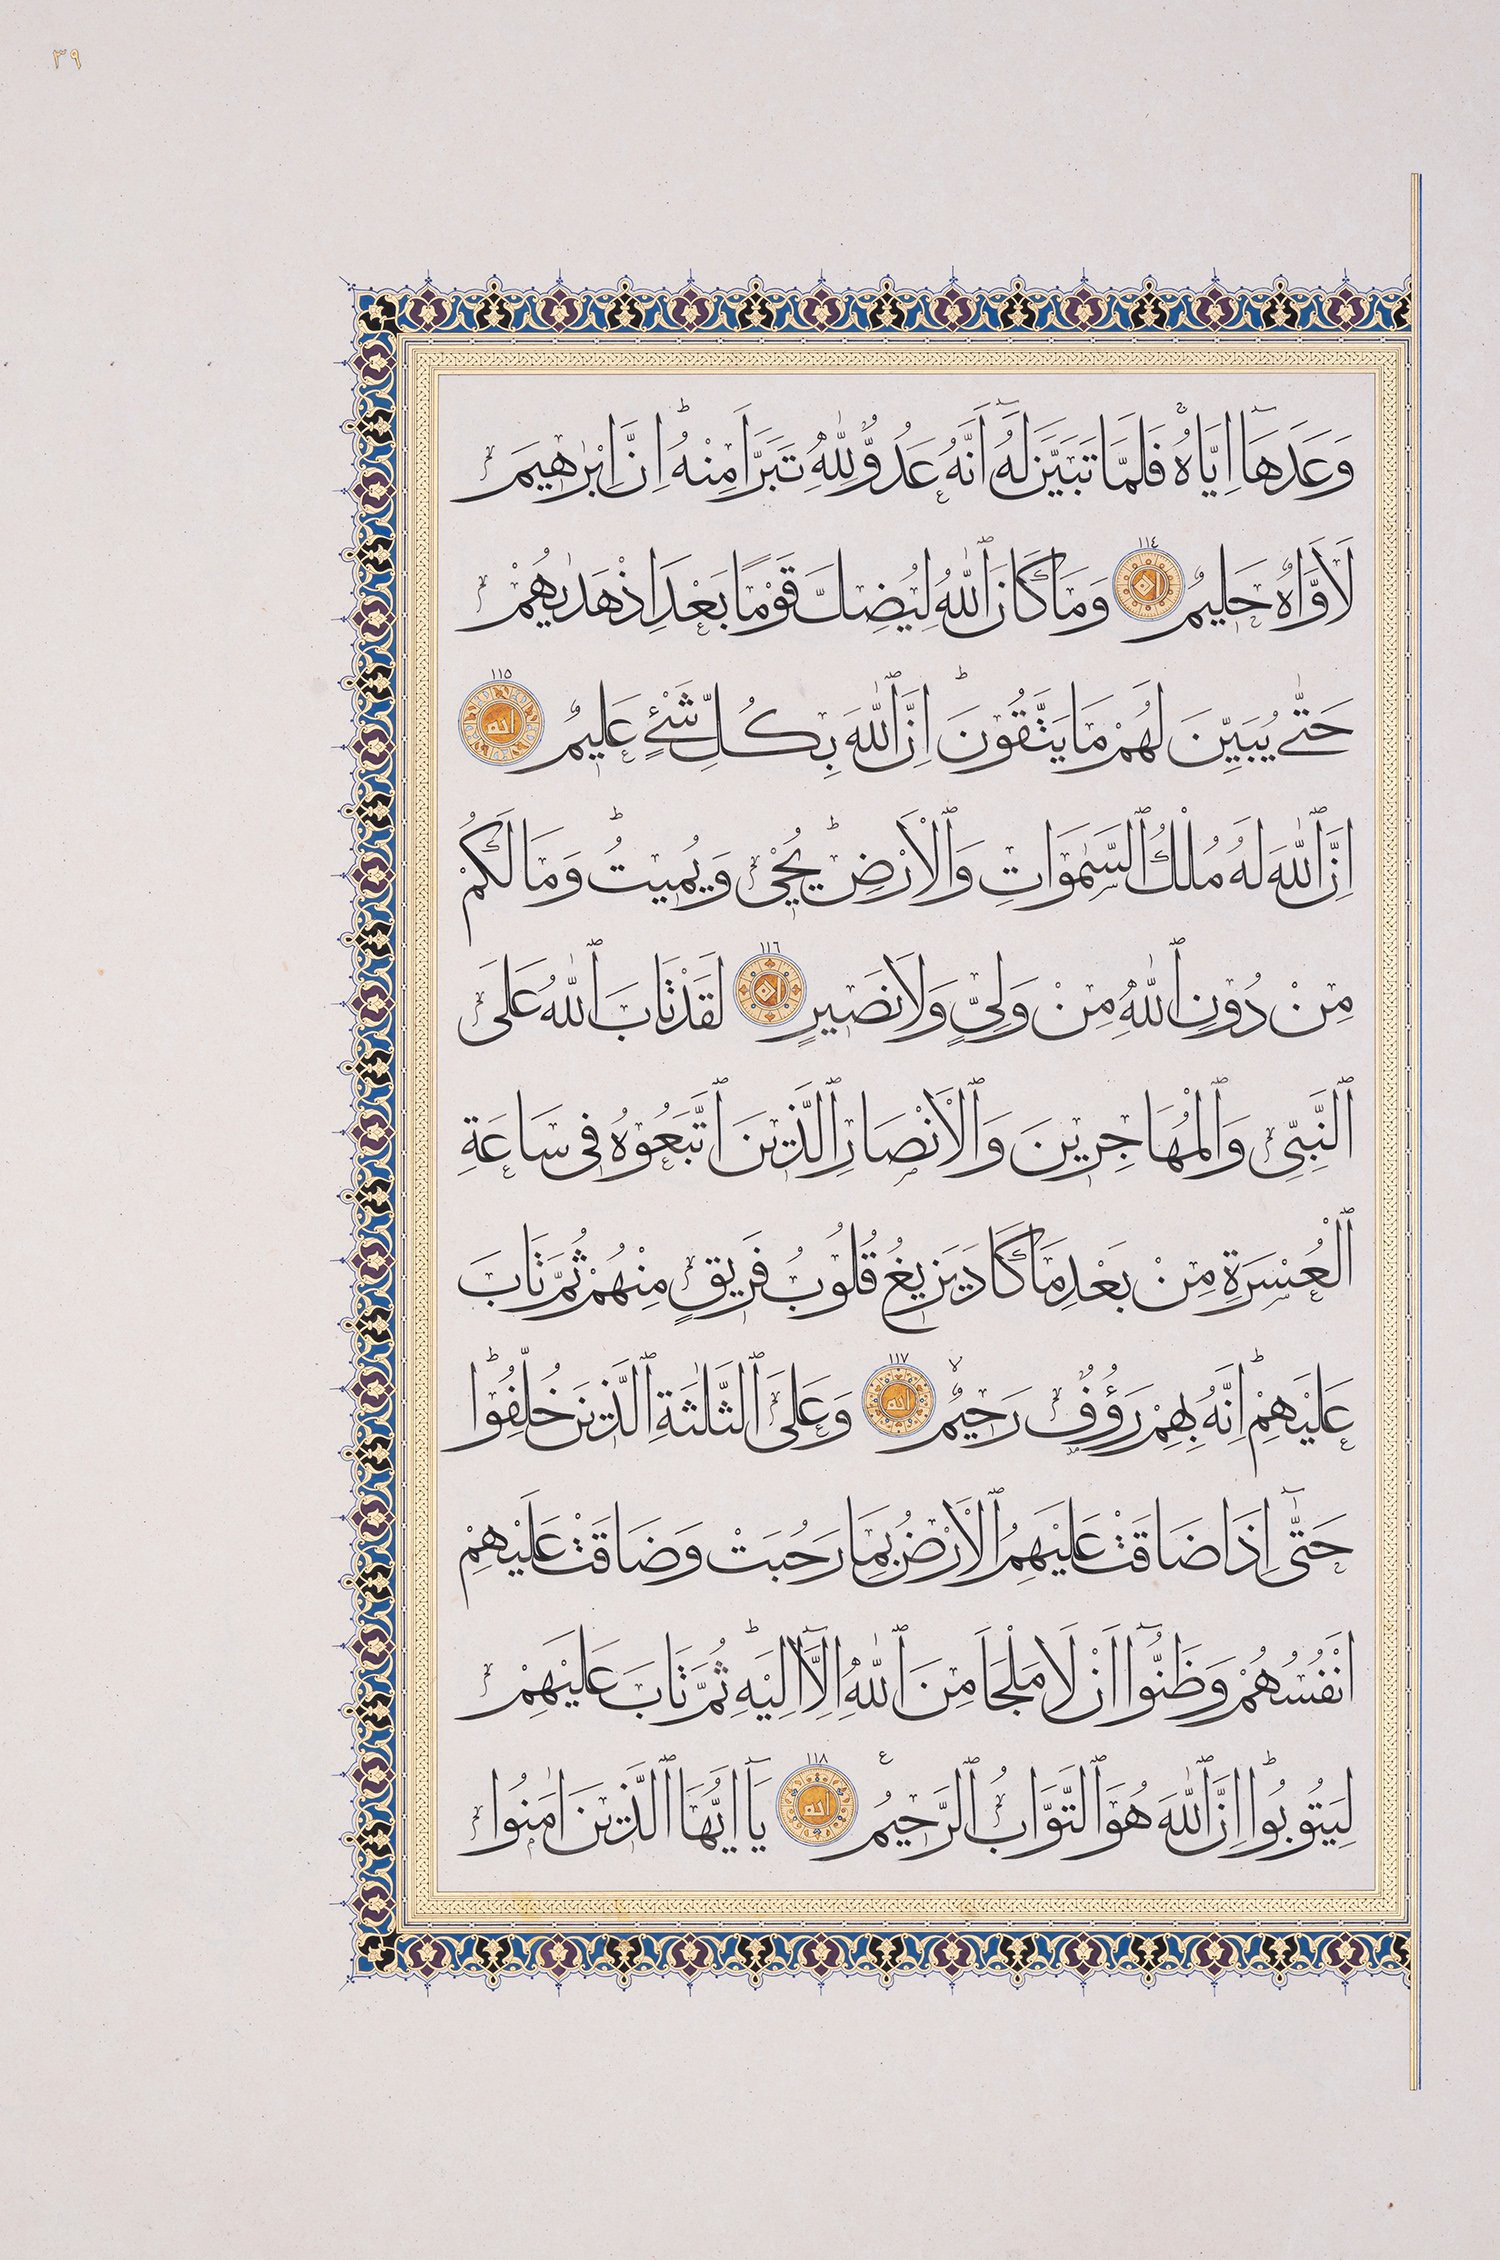 ٣٩
وَعَدَهَٓا اِيَّاهُۚ فَلَمَّا تَبَيَّنَ لَهُٓ اَنَّهُ عَدُوٌّ لِلّٰهِ تَبَرَّاَ مِنْهُۜ اِنَّ اِبْرٰهِيمَ
لَاَوَّاهٌ حَلِيمٌ ١١٤ وَمَا كَانَ ٱللّٰهُ لِيُضِلَّ قَوْمًا بَعْدَ اِذْ هَدٰيهُمْ
حَتّٰى يُبَيِّنَ لَهُمْ مَا يَتَّقُونَۜ اِنَّ ٱللّٰهَ بِكُلِّ شَىْءٍ عَلِيمٌ ١١٥
اِنَّ ٱللّٰهَ لَهُ مُلْكُ ٱلسَّمٰوَاتِ وَٱلْاَرْضِۜ يُحْيٖ وَيُمِيتُۜ وَمَا لَكُمْ
مِنْ دُونِ ٱللّٰهِ مِنْ وَلِىٍّ وَلَا نَصِيرٍ ١١٦ لَقَدْ تَابَ ٱللّٰهُ عَلَى
ٱلنَّبِىِّ وَٱلْمُهَاجِرِينَ وَٱلْاَنْصَارِ ٱلَّذِينَ ٱتَّبَعُوهُ فِى سَاعَةِ
ٱلْعُسْرَةِ مِنْ بَعْدِ مَا كَادَ يَزِيغُ قُلُوبُ فَرِيقٍ مِنْهُمْ ثُمَّ تَابَ
عَلَيْهِمْۜ اِنَّهُ بِهِمْ رَؤُفٌ رَحِيمٌۙ ١١٧ وَعَلَى ٱلثَّلٰثَةِ ٱلَّذِينَ خُلِّفُواۜ
حَتّٰٓى اِذَا ضَاقَتْ عَلَيْهِمُ ٱلْاَرْضُ بِمَا رَحُبَتْ وَضَاقَتْ عَلَيْهِمْ
اَنْفُسُهُمْ وَظَنُّٓوا اَنْ لَا مَلْجَاَ مِنَ ٱللّٰهِ اِلَّٓا اِلَيْهِۜ ثُمَّ تَابَ عَلَيْهِمْ
لِيَتُوبُواۜ اِنَّ ٱللّٰهَ هُوَ ٱلتَّوَّابُ ٱلرَّحِيمُ ع ١١٨ يَٓا اَيُّهَا ٱلَّذِينَ اٰمَنُوا